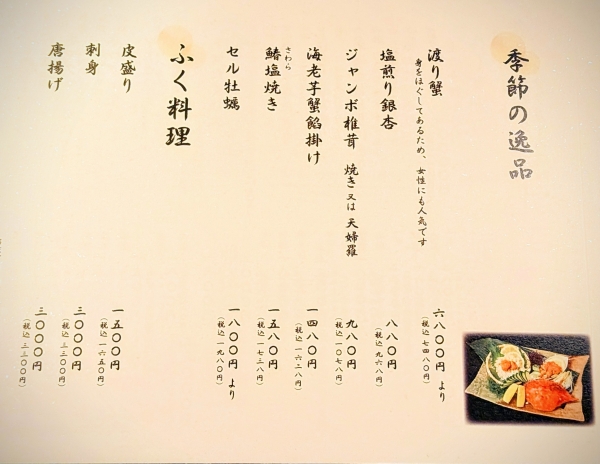 季節の逸品
渡り蟹
身をほぐしてあるため、女性にも人気です
六八〇〇円 より
(税込 七四八〇円)
塩煎り銀杏
八八〇円
(税込 九六八円)
ジャンボ椎茸 焼き又は天婦羅
九八〇円
(税込 一〇七八円)
海老芋蟹餡掛け
一四八〇円
(税込 一六二八円)
さわら
鰆塩焼き
一五八〇円
(税込 一七三八円)
セル牡蠣
一八〇〇円 より
(税込 一九八〇円)
ふく料理
皮盛り
一五〇〇円
(税込 一六五〇円)
刺身
三〇〇〇円
(税込 三三〇〇円)
唐揚げ
三〇〇〇円
(税込 三三〇〇円)